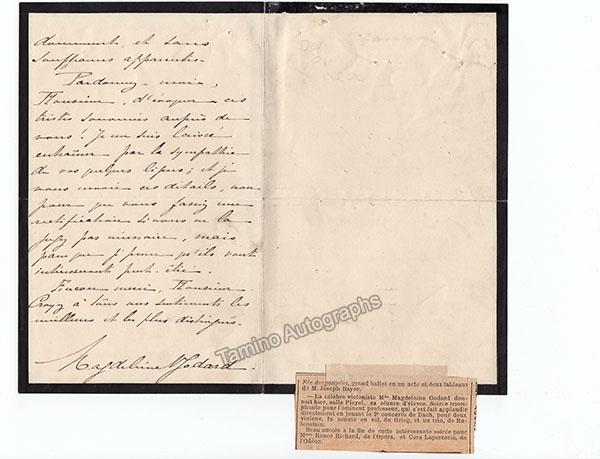 doucement, et sans
souffrances apparentes.
Pardonnez-moi,
Monsieur, d'évoquer ces
tristes souvenirs auprès de
vous! Je me suis laissée
entraîner par la sympathie
de vos quelques lignes; et je
vous envoie ces détails, non
pour que vous fassiez une
rectification si vous ne la
jugez pas nécessaire, mais
parce que je pense qu'ils vont
intéresseront peut-être.
Encore merci, Monsieur
Croyez à tous mes sentiments les
meilleurs et les plus distingués.
Magdeleine Godard
Tamino Autographs
Fée des poupées, grand ballet en un acte et deux tableaux
de M. Joseph Bayer.
— La célèbre violoniste Mlle Magdeleine Godard don-
nait hier, salle Pleyel, sa séance d'élèves. Soirée triom-
phante pour l'éminent professeur, qui s'est fait applaudir
directement en jouant le 2e concerto de Bach, pour deux
violons, la sonate en sol, de Grieg, et un trio, de Ru-
binstein.
Beau succès à la fin de cette intéressante soirée pour
Mmes Renée Richard, de l'Opéra, et Cora Laparcerie, de
l'Odéon.